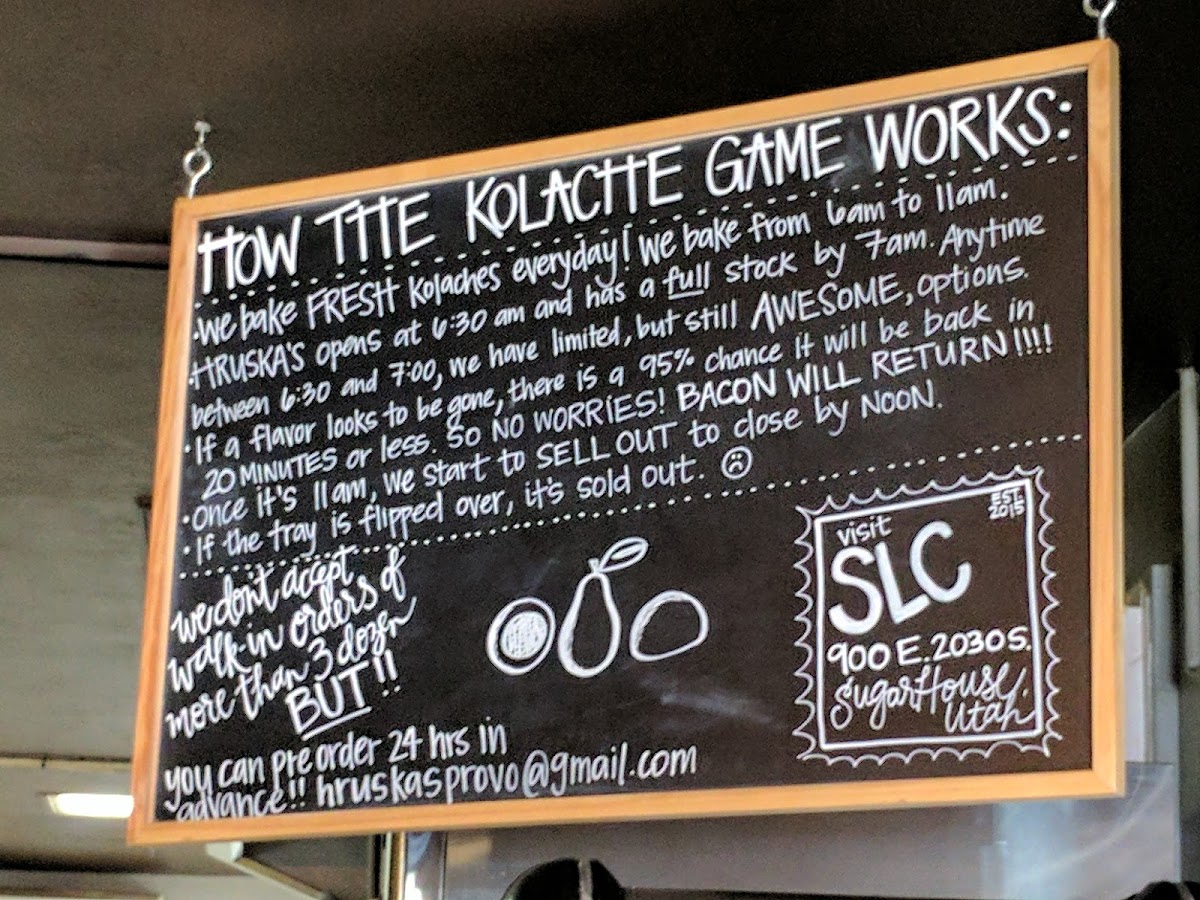 HOW THE KOLACHE GAME WORKS:
• We bake FRESH Kolaches everyday! We bake from 6am to 11am.
• HRUSKA'S opens at 6:30 am and has a full stock by 7am. Anytime
between 6:30 and 7:00, we have limited, but still AWESOME, options.
• If a flavor looks to be gone, there is a 95% chance it will be back in
20 MINUTES or less. SO NO WORRIES! BACON WILL RETURN!!!!
• once it's 11am, we start to SELL OUT to close by NOON.
• If the tray is flipped over, it's sold out. ☹
we don't accept
walk-in orders of
more than 3 dozen
BUT!!
you can pre order 24 hrs in
advance!! hruskasprovo@gmail.com
EST.
2015
visit
SLC
900 E. 2030 S.
SugarHouse,
Utah